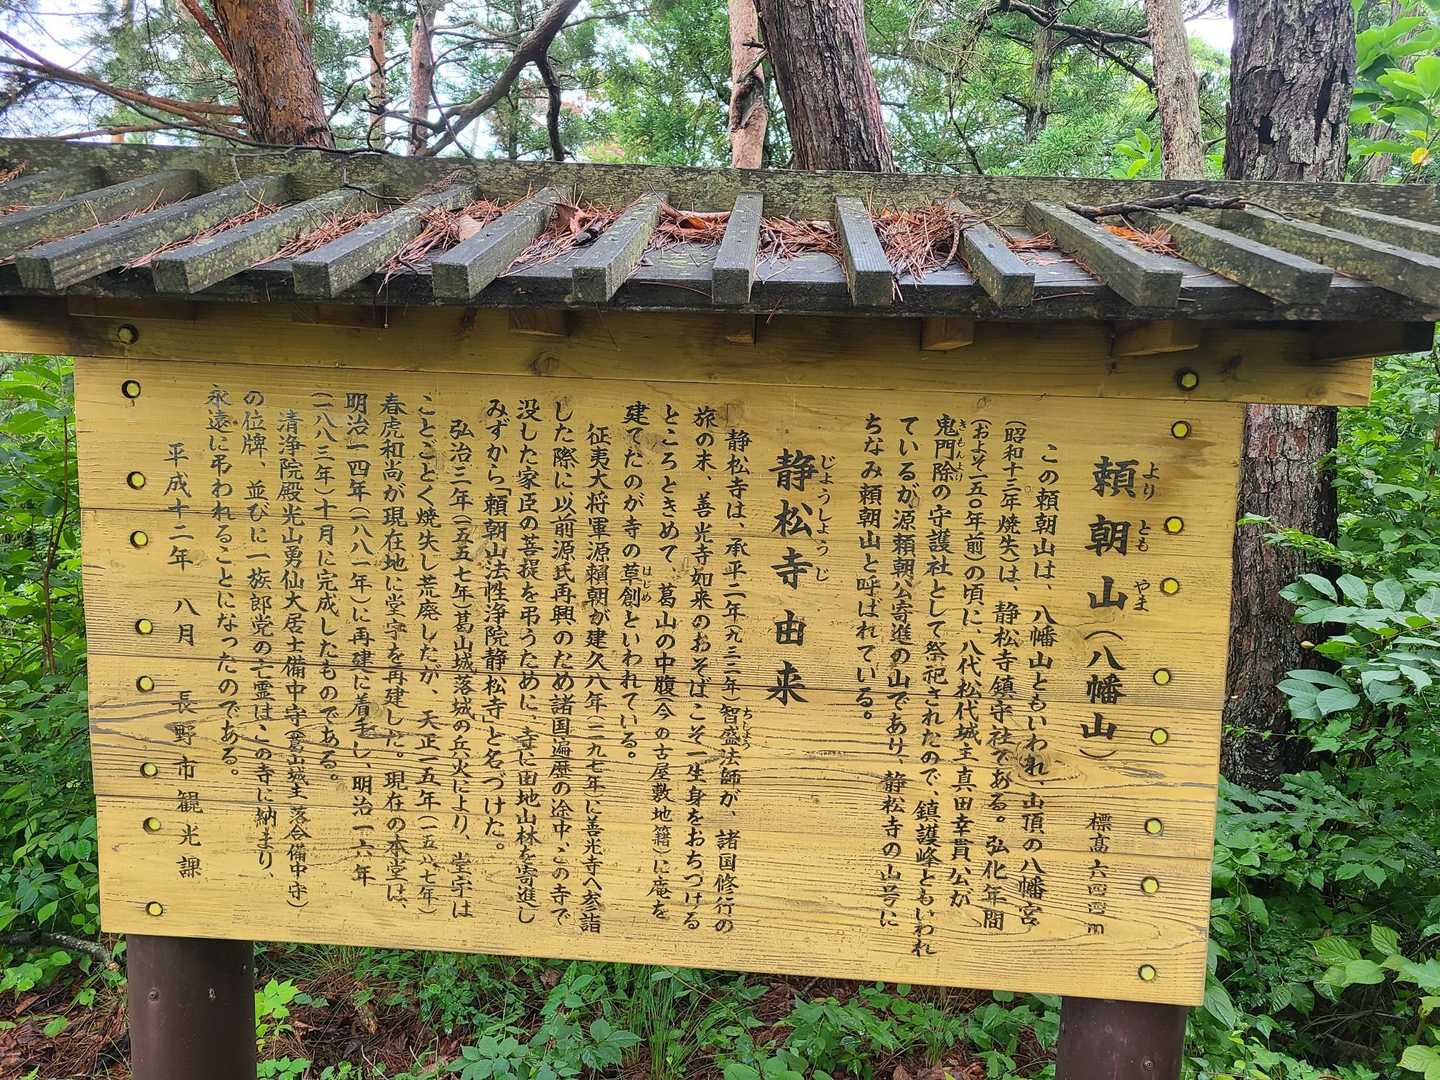 頼朝山(八幡山)
よりともやま
標高六四四m
この頼朝山は、八幡山ともいわれ、山頂の八幡宮
(昭和十三年焼失)は、静松寺鎮守社である。弘化年間
(およそ一五〇年前)の頃に、八代松代城主真田幸貫公が
鬼門除の守護社として祭祀されたので、鎮護峰ともいわれ
きもんより
ているが源頼朝公寄進の山であり、静松寺の山号に
ちなみ頼朝山と呼ばれている。
静松寺由来
じょうしょうじ
静松寺は、承平二年(九三二年)智盛法師が、諸国修行の
ちしょう
旅の末、善光寺如来のおそばこそ一生身をおちつける
ところときめて、葛山の中腹(今の古屋敷地籍)に庵を
建てたのが寺の草創といわれている。
はじめ
征夷大将軍源頼朝が建久八年(一一九七年)に善光寺へ参詣
した際に以前源氏再興のため諸国遍歴の途中、この寺で
没した家臣の菩提を弔うために、寺に田地山林を寄進し
みずから「頼朝山法性浄院静松寺」と名づけた。
弘治三年(一五五七年)葛山城落城の兵火により、堂宇は
ことごとく焼失し荒廃したが、天正一五年(一五八七年)
春虎和尚が現在地に堂宇を再建した。現在の本堂は、
明治一四年(一八八一年)に再建に着手し、明治一六年
(一八八三年)十月に完成したものである。
清浄院殿光山勇仙大居士備中守(葛山城主 落合備中守)
の位牌、並びに一族郎党の亡霊は、この寺に納まり、
永遠に弔われることになったのである。
平成十二年 八月 長野市観光課